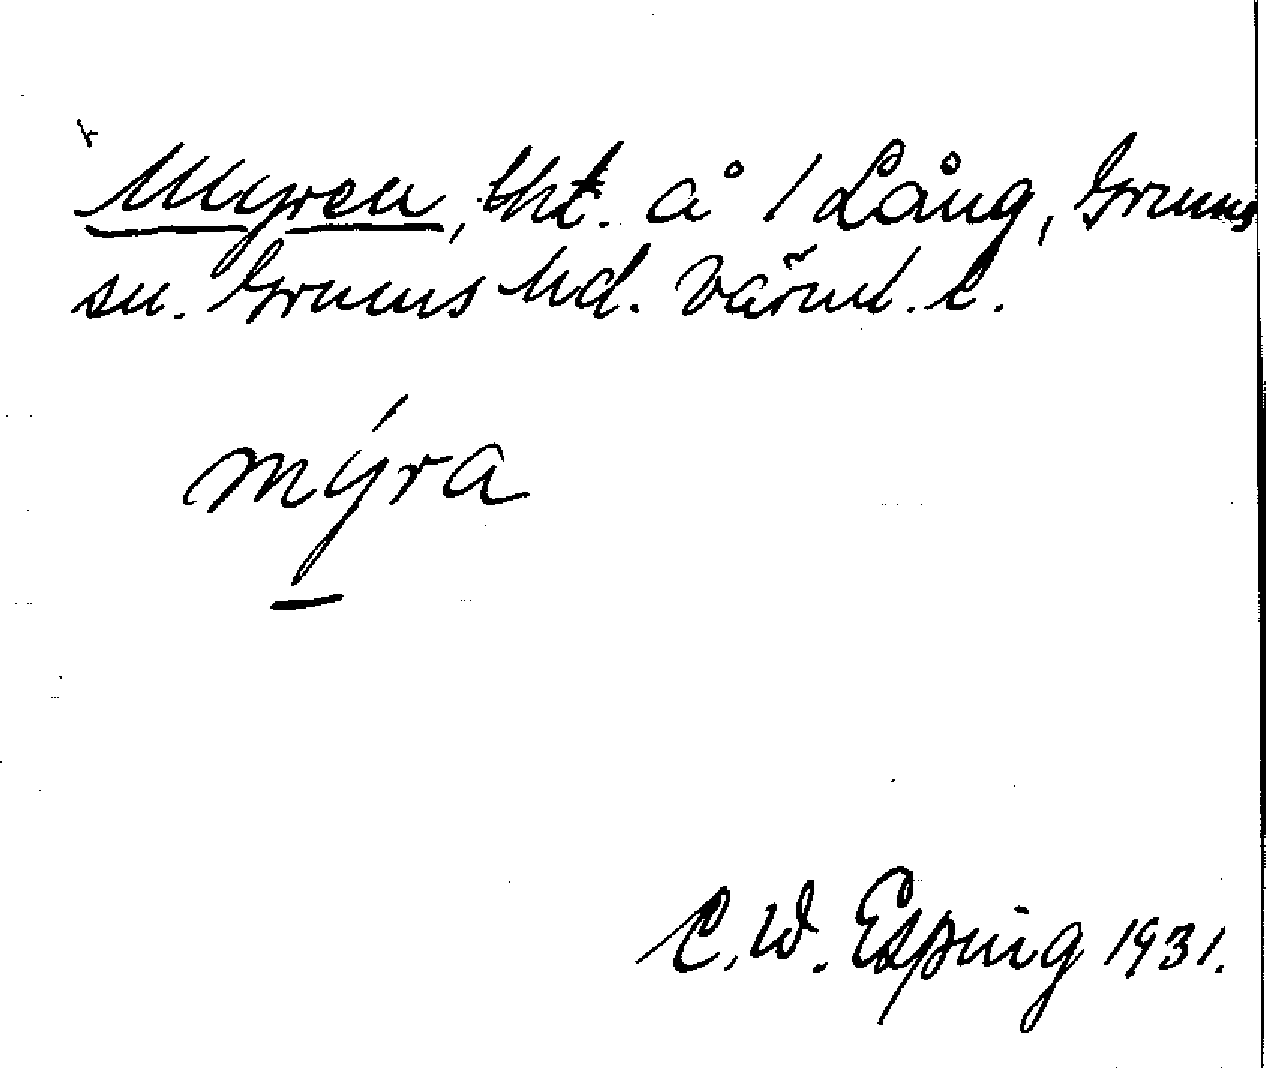 Myren, tht. å 1 Lång, Grums
sn. Grums hd. Värml. l.
mýra
C. W. Esping 1931.